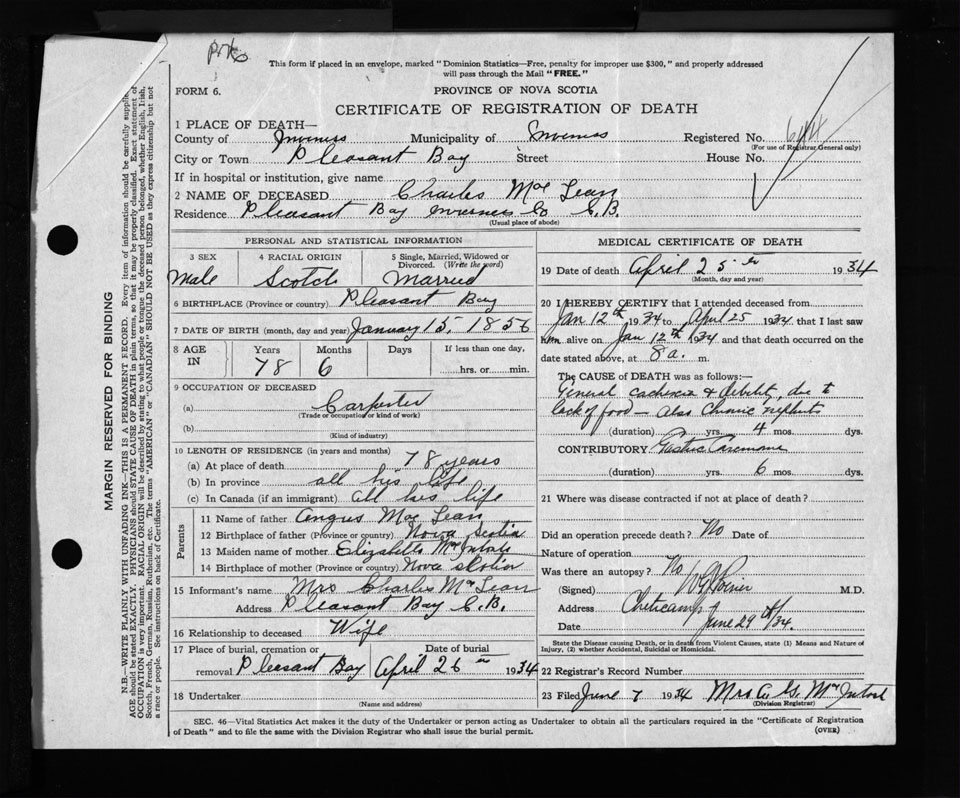 This form if placed in an envelope, marked "Dominion Statistics—Free, penalty for improper use $300," and properly addressed
will pass through the Mail "FREE."
FORM 6.
PROVINCE OF NOVA SCOTIA
CERTIFICATE OF REGISTRATION OF DEATH
1 PLACE OF DEATH—
County of Inverness Municipality of Inverness Registered No. 644
(For use of Registrar General only)
City or Town Pleasant Bay Street House No.
If in hospital or institution, give name
2 NAME OF DECEASED Charles Mac Lean
Residence Pleasant Bay Inverness Co C.B.
(Usual place of abode)
MARGIN RESERVED FOR BINDING
N.B.—WRITE PLAINLY WITH UNFADING INK—THIS IS A PERMANENT RECORD. Every item of information should be carefully supplied.
AGE should be stated EXACTLY. PHYSICIANS should STATE CAUSE OF DEATH in plain terms, so that it may be properly classified. Exact statement of
OCCUPATION is very important. RACIAL ORIGIN will be described by stating to what people or tongue the deceased person belonged, whether English, Irish,
Scotch, French, German, Russian, Ruthenian, etc. The terms "AMERICAN" or "CANADIAN" SHOULD NOT BE USED as they express citizenship but not
a race or people. See instructions on back of Certificate.
PERSONAL AND STATISTICAL INFORMATION
3 SEX 4 RACIAL ORIGIN 5 Single, Married, Widowed or
Divorced. (Write the word)
Male Scotch Married
6 BIRTHPLACE (Province or country) Pleasant Bay
7 DATE OF BIRTH (month, day and year) January 15, 1856
8 AGE IN Years Months Days If less than one day,
78 6 hrs. or min.
9 OCCUPATION OF DECEASED
(a) Carpenter
(Trade or occupation or kind of work)
(b)
(Kind of industry)
10 LENGTH OF RESIDENCE (in years and months)
(a) At place of death 78 years
(b) In province all his life
(c) In Canada (if an immigrant) all his life
Parents
11 Name of father Angus Mac Lean
12 Birthplace of father (Province or country) Nova Scotia
13 Maiden name of mother Elizabeth McIntosh
14 Birthplace of mother (Province or country) Nova Scotia
15 Informant's name Mrs Charles McLean
Address Pleasant Bay C.B.
16 Relationship to deceased Wife
17 Place of burial, cremation or Date of burial
removal Pleasant Bay April 26th 1934
18 Undertaker
(Name and address)
MEDICAL CERTIFICATE OF DEATH
19 Date of death April 25th 1934
(Month, day and year)
20 I HEREBY CERTIFY that I attended deceased from
Jan 12th 1934 to April 25 1934 that I last saw
him alive on Jan 12th 1934 and that death occurred on the
date stated above, at 8 a. m.
The CAUSE of DEATH was as follows:—
General cachexia & debility, due to
lack of food — also Chronic nephritis
(duration) yrs. 4 mos. dys.
CONTRIBUTORY Gastric Carcinoma
(duration) yrs. 6 mos. dys.
21 Where was disease contracted if not at place of death?
Did an operation precede death? No Date of
Nature of operation
Was there an autopsy? No
(Signed) M.D.
Address Cheticamp
Date June 29th/34.
State the Disease causing Death, or in death from Violent Causes, state (1) Means and Nature of
Injury, (2) whether Accidental, Suicidal or Homicidal.
22 Registrar's Record Number
23 Filed June 7 1934 Mrs A. G. McIntosh
(Division Registrar)
SEC. 46—Vital Statistics Act makes it the duty of the Undertaker or person acting as Undertaker to obtain all the particulars required in the "Certificate of Registration
of Death" and to file the same with the Division Registrar who shall issue the burial permit.
(OVER)